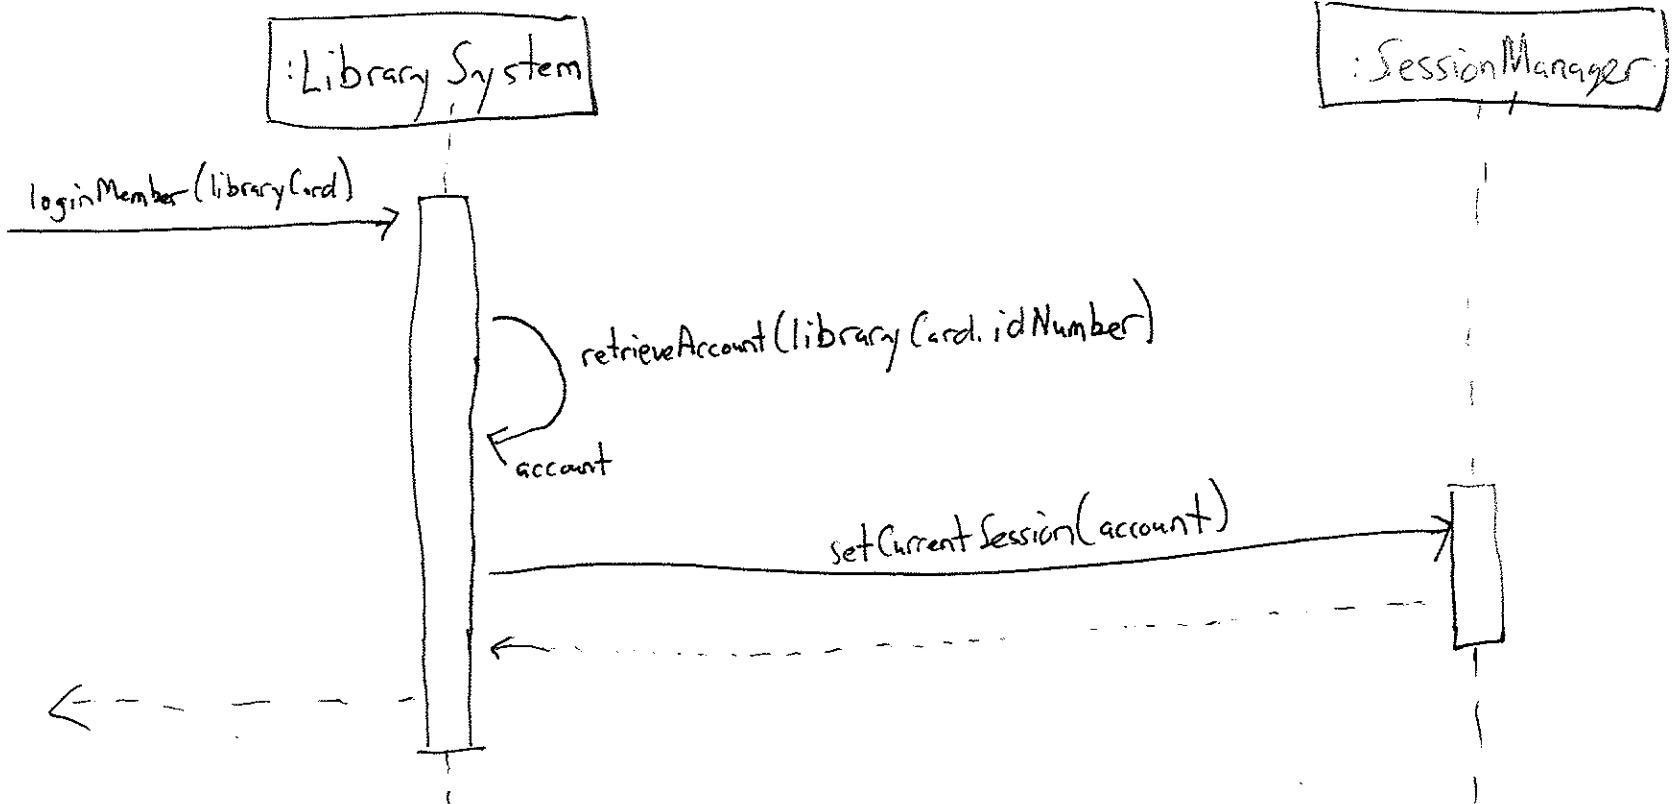 :LibrarySystem
:SessionManager
loginMember(libraryCard)
retrieveAccount(libraryCard.idNumber)
account
setCurrentSession(account)